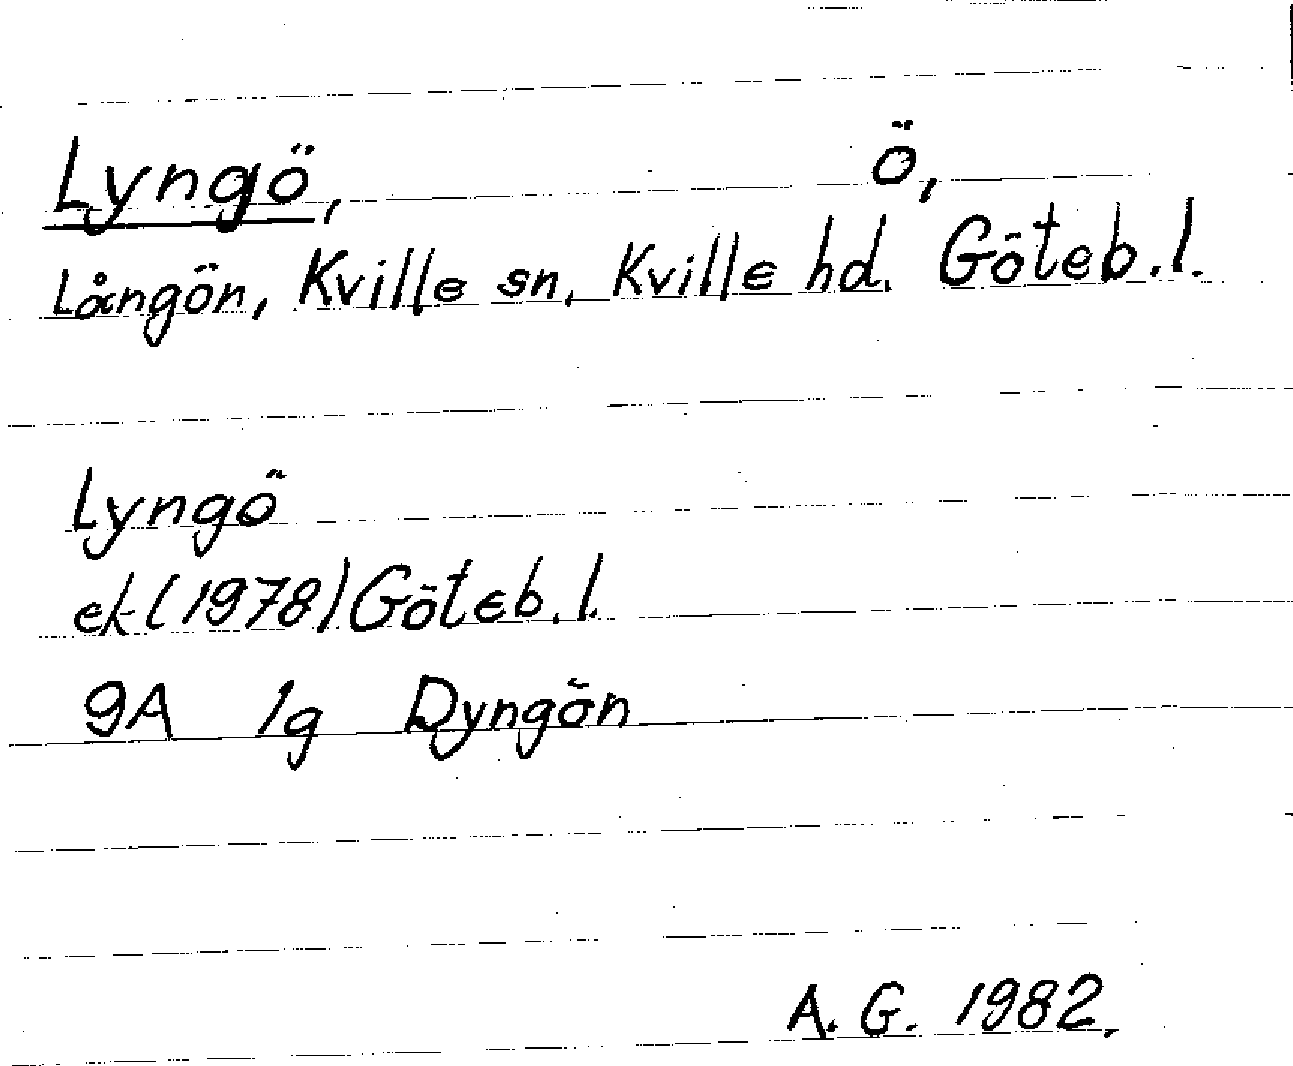 Lyngö, ö,
Långön, Kville sn, Kville hd. Göteb.l.
Lyngö
ek (1978) Göteb.l.
9A 1g Dyngön
A. G. 1982.